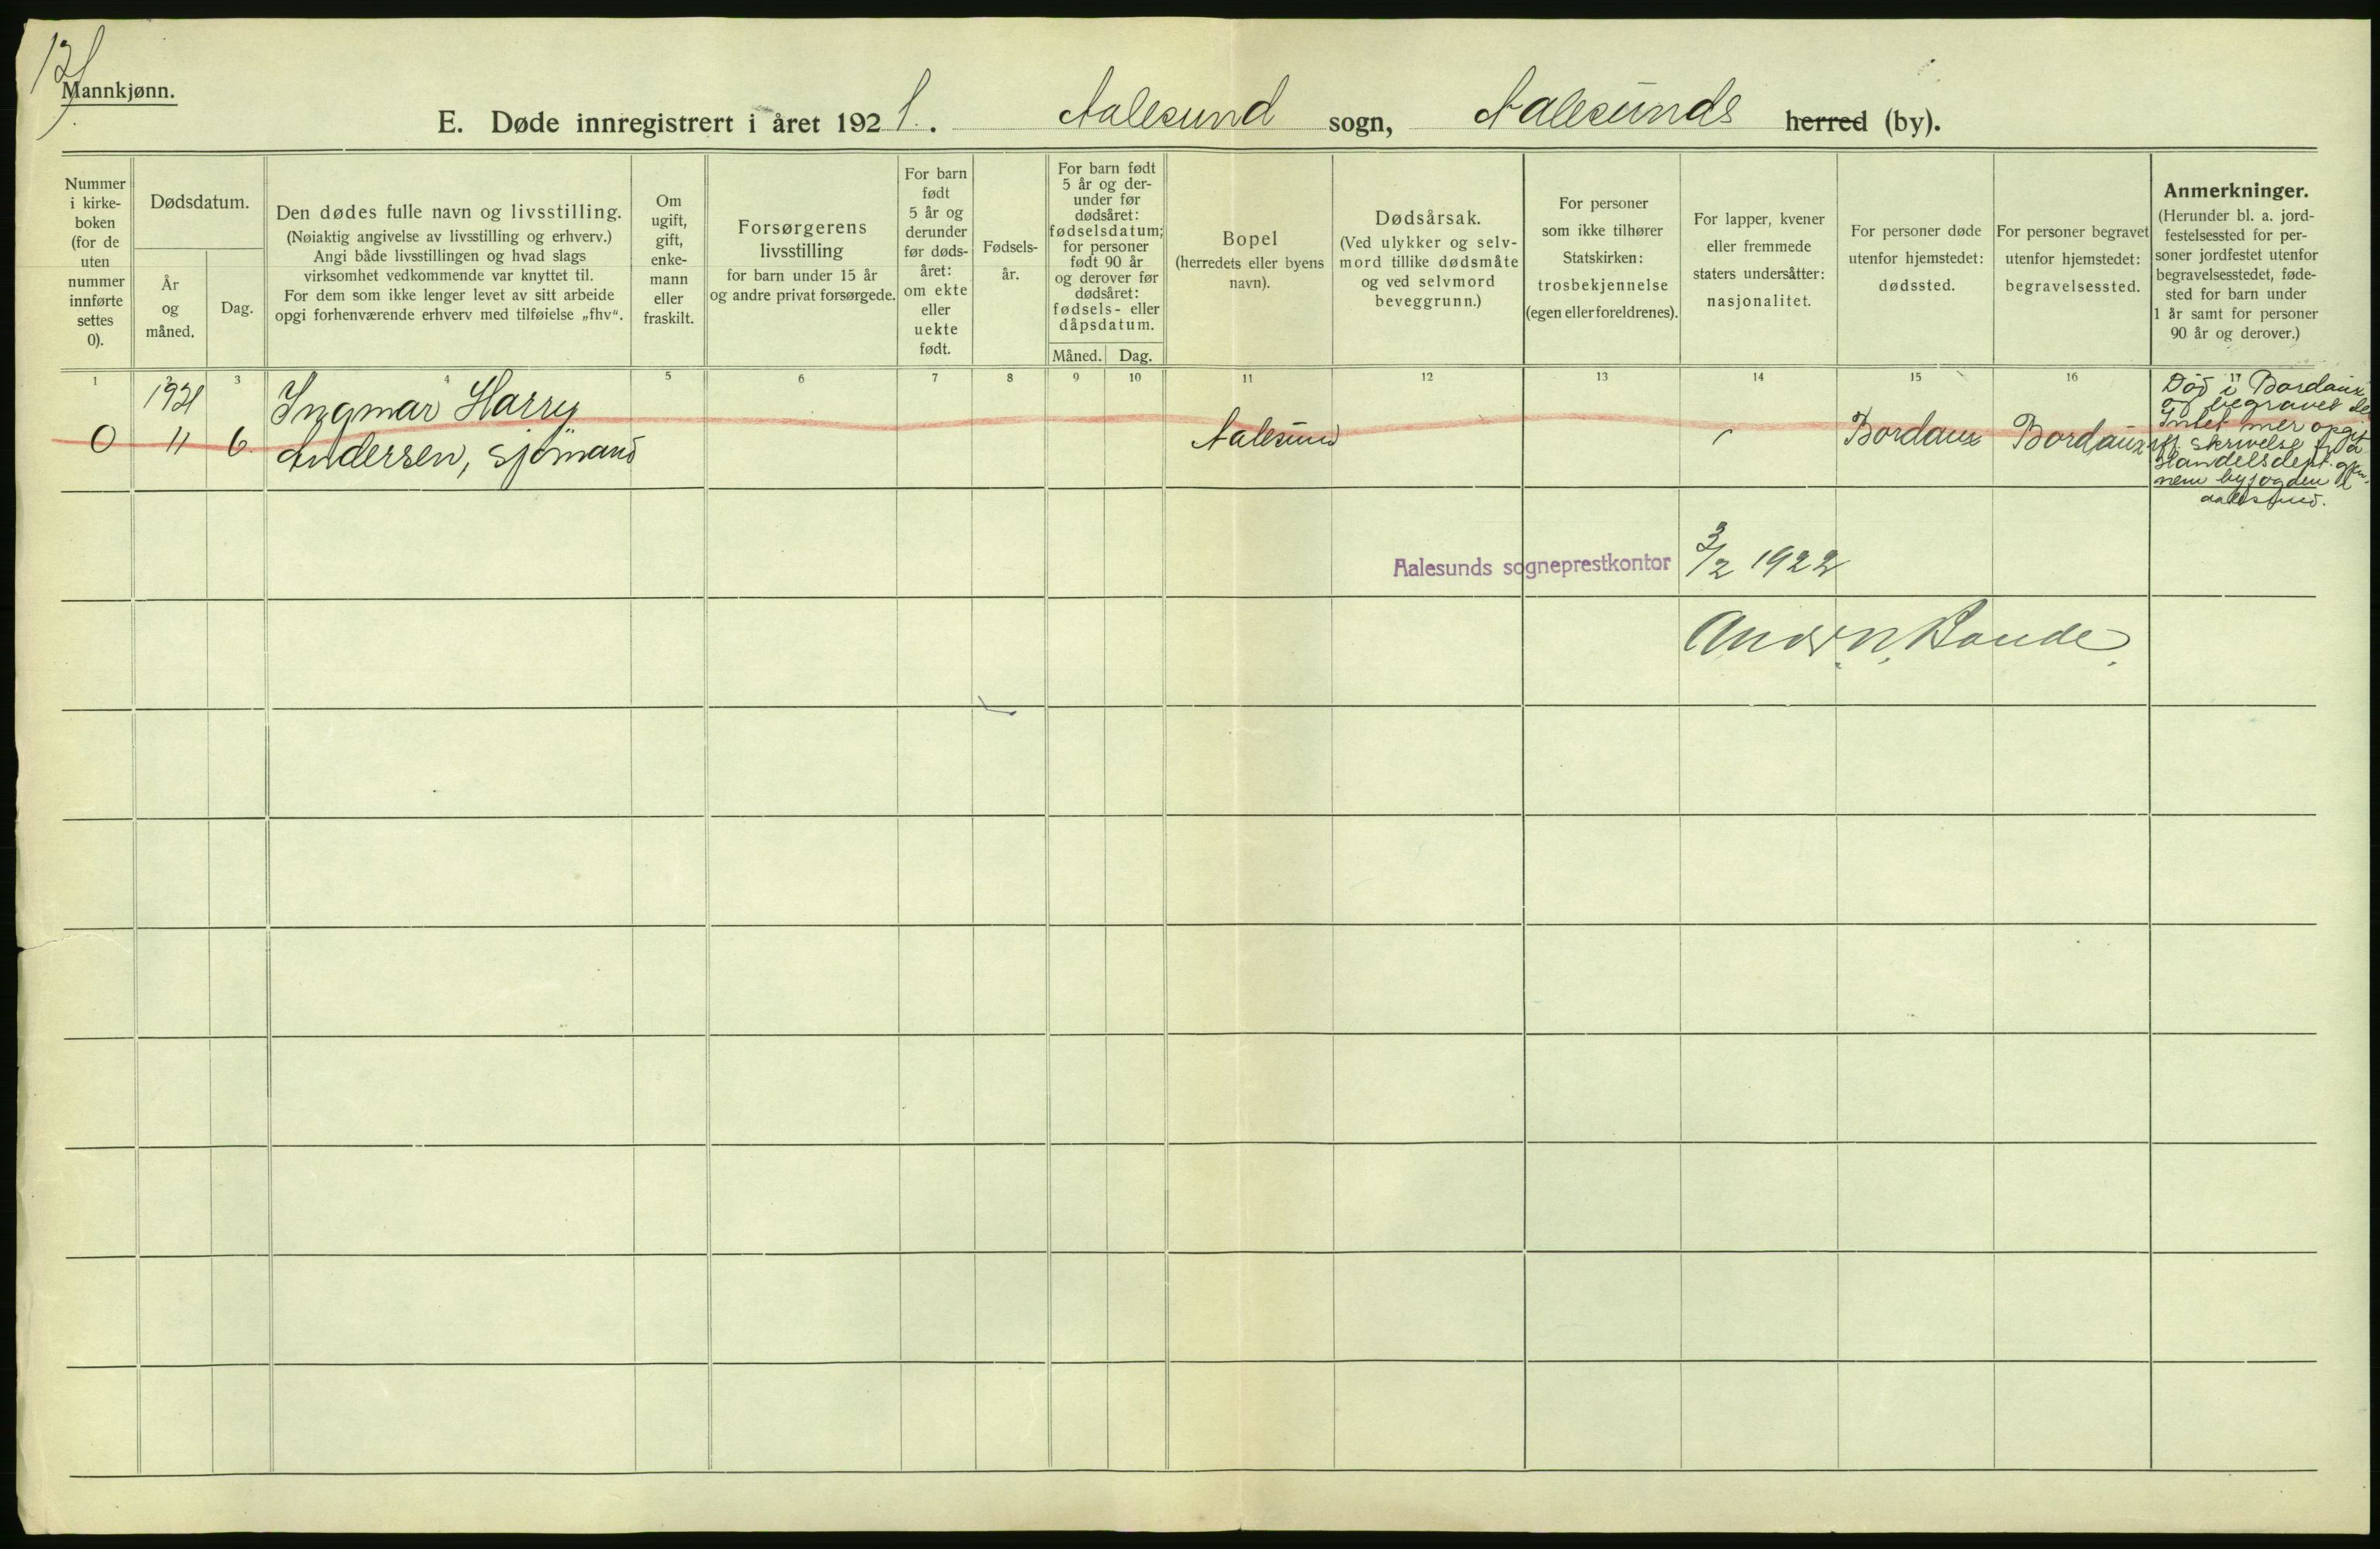 Mannkjønn.
E. Døde innregistrert i året 1921. Aalesund sogn, Aalesunds herred (by).
Nummer
i kirke-
boken
(for de
uten
nummer
innførte
settes
0).
Dødsdatum.
År
og
måned.
Dag.
Den dødes fulle navn og livsstilling.
(Nøiaktig angivelse av livsstilling og erhverv.)
Angi både livsstillingen og hvad slags
virksomhet vedkommende var knyttet til.
For dem som ikke lenger levet av sitt arbeide
opgi forhenværende erhverv med tilføielse „fhv“.
Om
ugift,
gift,
enke-
mann
eller
fraskilt.
Forsørgerens
livsstilling
for barn under 15 år
og andre privat forsørgede.
For barn
født
5 år og
derunder
før døds-
året:
om ekte
eller
uekte
født.
Fødsels-
år.
For barn født
5 år og der-
under før
dødsåret:
fødselsdatum;
for personer
født 90 år
og derover før
dødsåret:
fødsels- eller
dåpsdatum.
Måned. Dag.
Bopel
(herredets eller byens
navn).
Dødsårsak.
(Ved ulykker og selv-
mord tillike dødsmåte
og ved selvmord
beveggrunn.)
For personer
som ikke tilhører
Statskirken:
trosbekjennelse
(egen eller foreldrenes).
For lapper, kvener
eller fremmede
staters undersåtter:
nasjonalitet.
For personer døde
utenfor hjemstedet:
dødssted.
For personer begravet
utenfor hjemstedet:
begravelsessted.
Anmerkninger.
(Herunder bl. a. jord-
festelsessted for per-
soner jordfestet utenfor
begravelsesstedet, føde-
sted for barn under
1 år samt for personer
90 år og derover.)
1 2 3 4 5 6 7 8 9 10 11 12 13 14 15 16 17
1921
0 11 6
Ingmar Harry
Andersen, sjömand
Aalesund
Bordaux
Bordaux
Död i Bordaux
og begravet de
Intet mer opgit
ifl. skrivelse fra
Handelsdept. gjen-
nem byfogden i
aalesund.
Aalesunds sogneprestkontor 3/2 1922